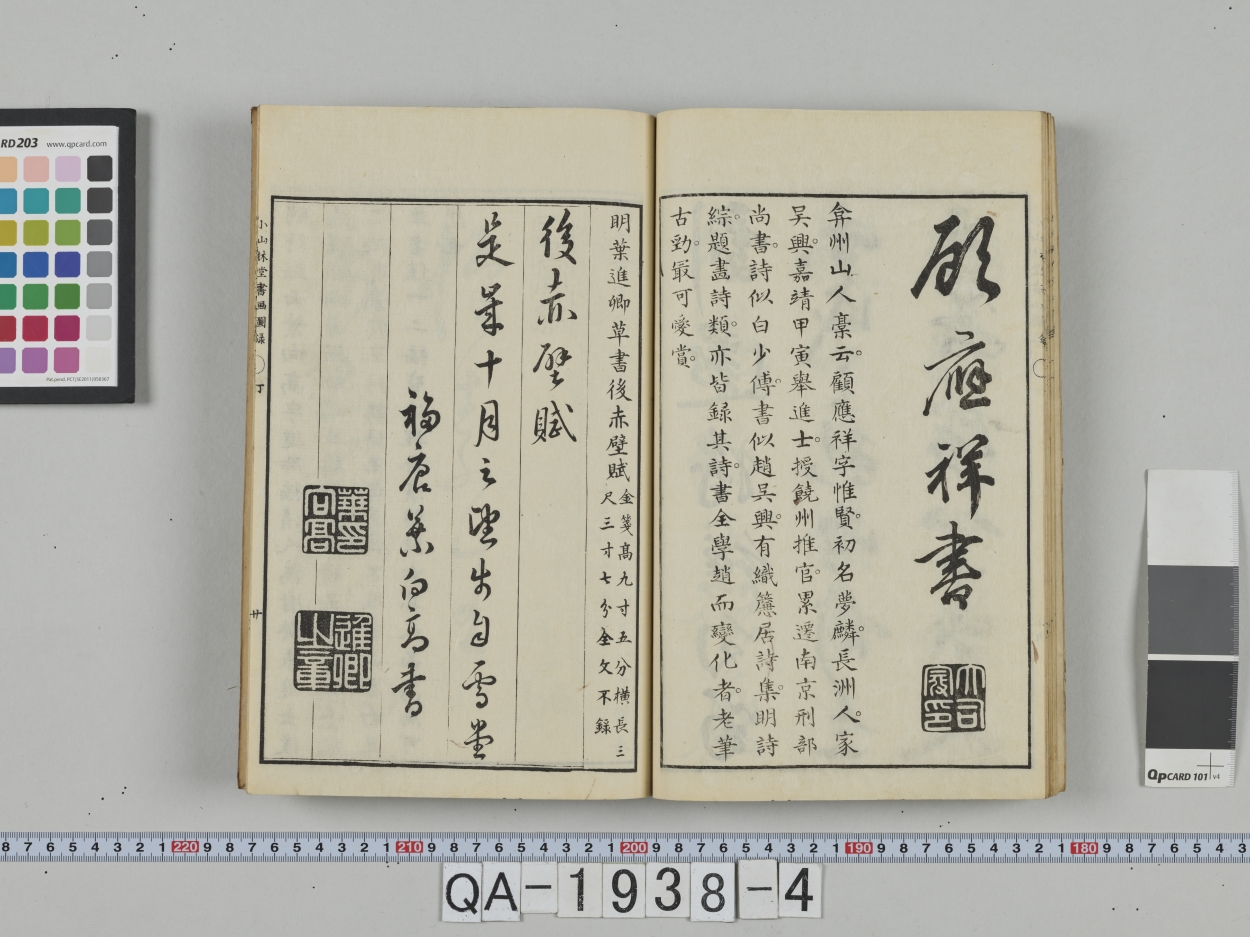 顧應祥書
大司寇印
弇州山人稾云。顧應祥字惟賢。初名夢麟。長洲人。家
吳興。嘉靖甲寅舉進士。授饒州推官。累遷南京刑部
尚書。詩似白少傅。書似趙吳興。有織簾居詩集。明詩
綜。題畫詩類。亦皆錄其詩。書全學趙而變化者。老筆
古勁。最可愛賞。
明葉進卿草書後赤壁賦
金箋高九寸五分橫長三
尺三寸七分全文不錄
後赤壁賦
是歲十月之望步自雪堂
福唐葉向高書
葉印向高
進卿
小山林堂書画圖録
丁
廿
RD203 www.qpcard.com
QPCARD 101 v4
8 7 6 5 4 3 2 1 220 9 8 7 6 5 4 3 2 1 210 9 8 7 6 5 4 3 2 1 200 9 8 7 6 5 4 3 2 1 190 9 8 7 6 5 4 3 2 1 180 9 8 7 6 5 4 3
QA-1938-4